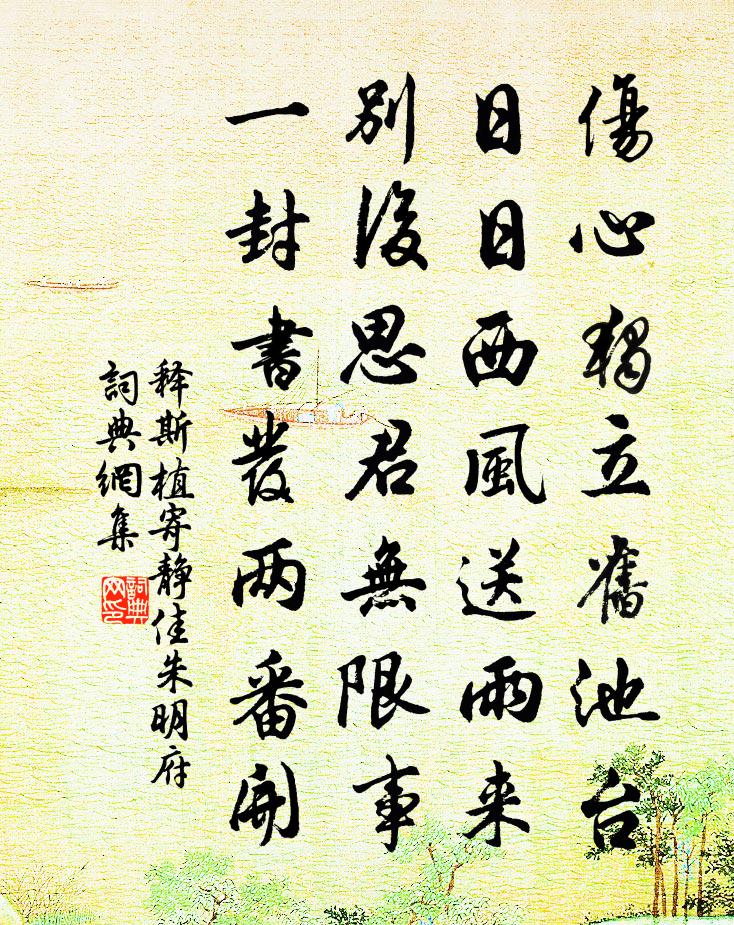 傷心獨立舊池台
日日西風送雨来
別後思君無限事
一封書發两番開
释斯植寄静佳朱明府
詞典網集
詞典網印